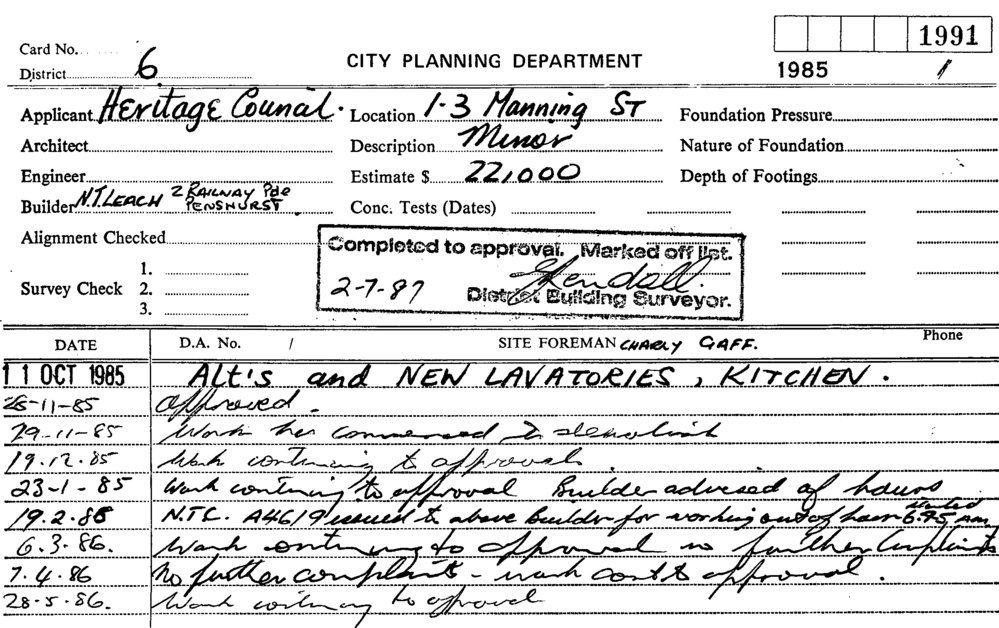 1991
Card No.
CITY PLANNING DEPARTMENT
District 6
1985 /
Applicant Heritage Council. Location 1-3 Manning ST Foundation Pressure
Architect Description Minor Nature of Foundation
Engineer Estimate $ 22,000 Depth of Footings
Builder N.T. LEACH 2 RAILWAY Pde PENSHURST Conc. Tests (Dates)
Alignment Checked
Completed to approval. Marked off list.
1.
Survey Check 2.
3.
2-7-87 District Building Surveyor.
DATE D.A. No. / SITE FOREMAN CHARLY GAFF. Phone
11 OCT 1985 ALT'S and NEW LAVATORIES, KITCHEN.
28-11-85 approved.
29-11-85 Work has commenced to demolish
19.12.85 Work continuing to approval.
23-1-85 Work continuing to approval Builder advised of hours
19.2.86 N.T.C. A4619 issued to above builder for working out of hours started 6.45 AM
6.3.86. Work continuing to approval no further complaints
7.4.86 No further complaints - work cont to approval.
28-5-86. Work continuing to approval